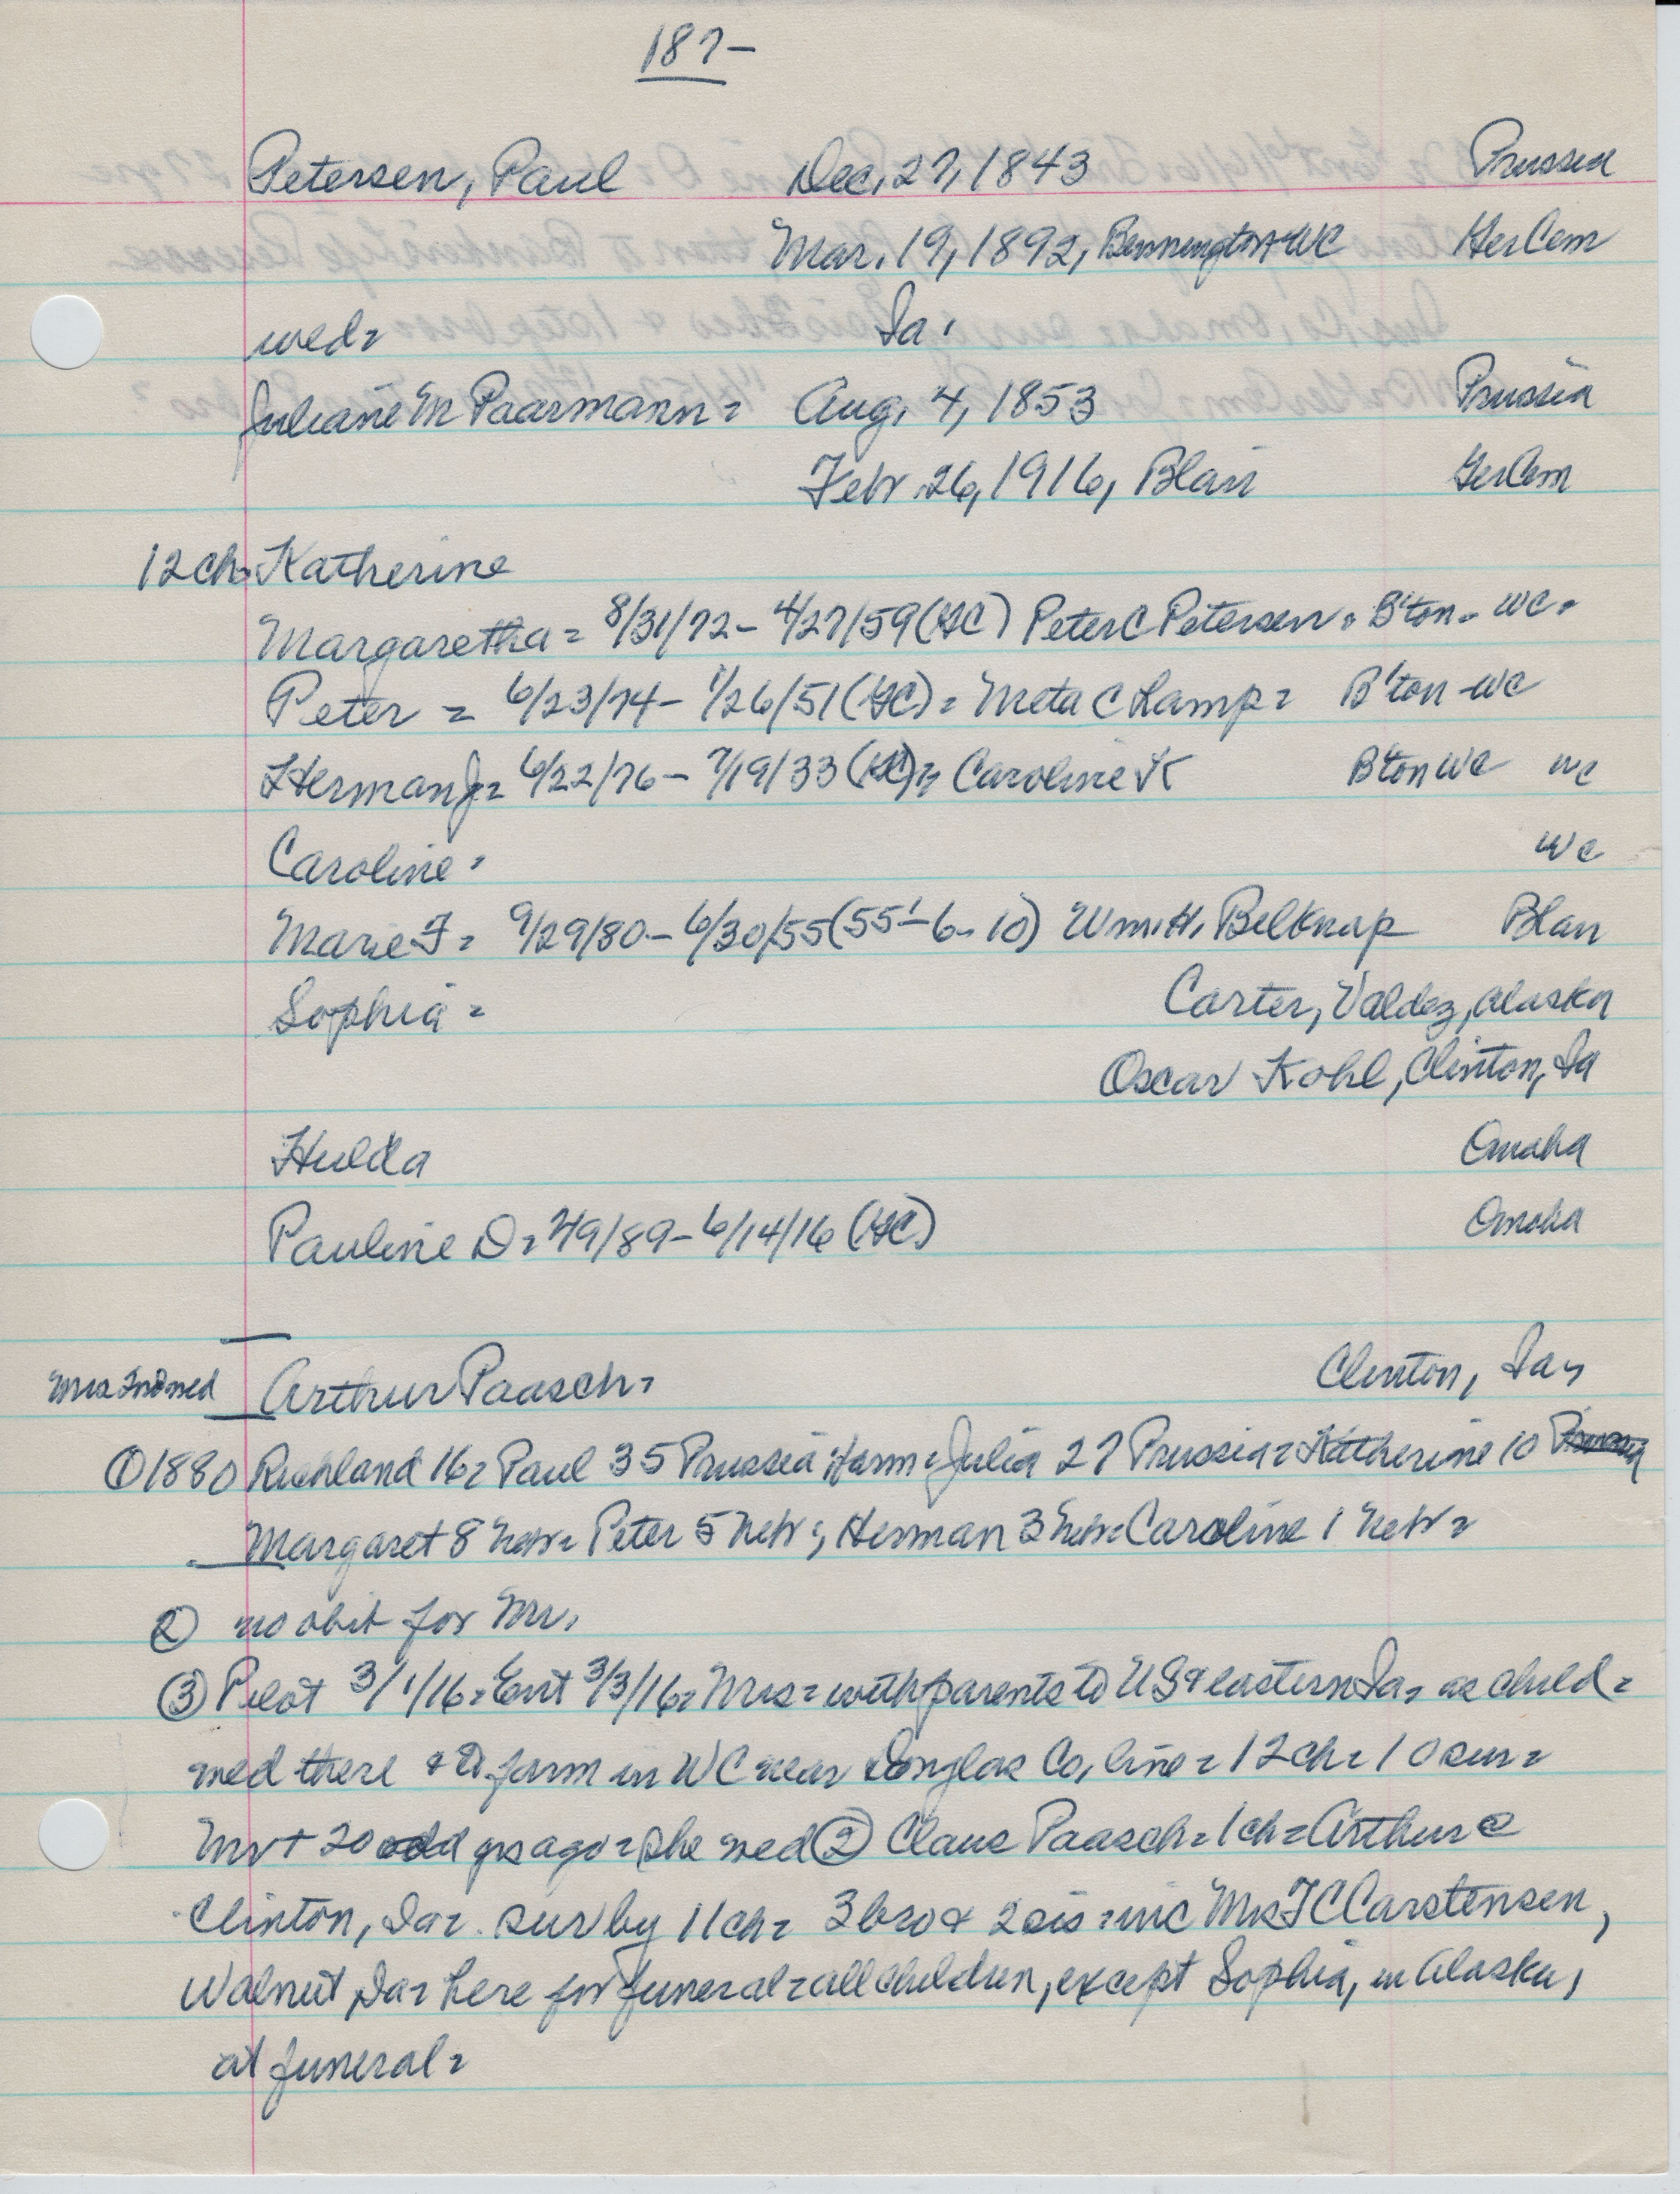 187-
Petersen, Paul Dec. 27, 1843 Prussia
Mar. 19, 1892, Bennington WC GerCem
wed= Ia.
Juliane M Paarmann= Aug. 4, 1853 Prussia
Febr. 26, 1916, Blair GerCem
12ch= Katherine
Margaretha= 8/31/72- 4/27/59 (GC) Peter C Petersen. B'ton- WC.
Peter = 6/23/74- 1/26/51 (GC)= Meta C Lamp= B'ton-WC
Herman J= 6/22/76- 7/19/33 (GC)= Caroline K B'ton WC WC
Caroline= WC
Marie F= 9/29/80- 6/30/55 (55'-6-10) Wm. H. Belknap Blair
Sophia= Carter, Valdez, Alaska
Oscar Kohl, Clinton, Ia
Hulda Omaha
Pauline D= /89- 6/14/16 (GC) Omaha
Mrs 2nd wed Arthur Paasch= Clinton, Ia,
① 1880 Richland 16= Paul 35 Prussia Farm= Julia 27 Prussia= Katherine 10 Prussia
Margaret 8 Nebr= Peter 5 Nebr; Herman 3 Nebr= Caroline 1 Nebr=
② no obit for Mr.
③ Pilot 3/1/16= Ent 3/3/16= Mrs= with parents to US & eastern Ia, as child=
wed there & to farm in WC near Douglas Co, line= 12ch= 10 sur=
Mr + 20 odd yrs ago= she wed ② Claus Paasch= 1ch= Arthur @
Clinton, Ia= sur by 11ch= 3bro & 2sis= inc Mrs F C Carstensen,
Walnut, Ia= here for funeral= all children, except Sophia, in Alaska,
at funeral=